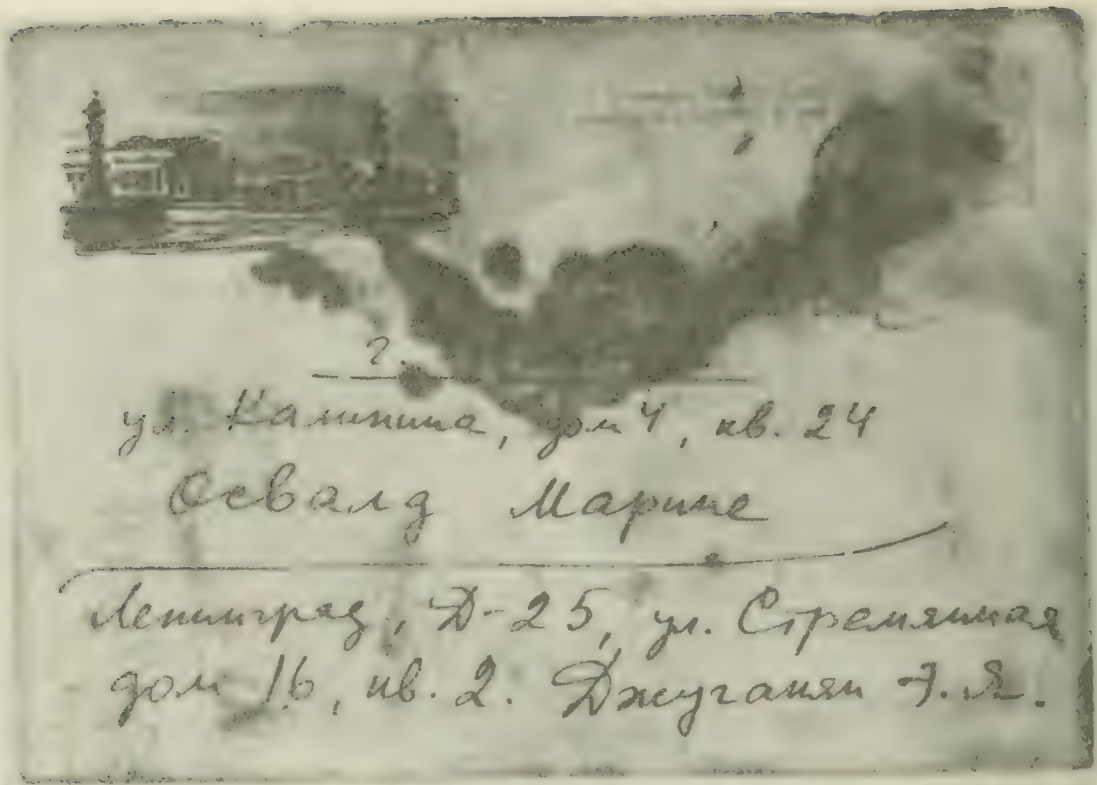 г.
ул. Калинина, дом 4, кв. 24
Освалд Марине
Ленинград, Д-25, ул. Стремянная
дом 16, кв. 2. Джуганян Э.Я.